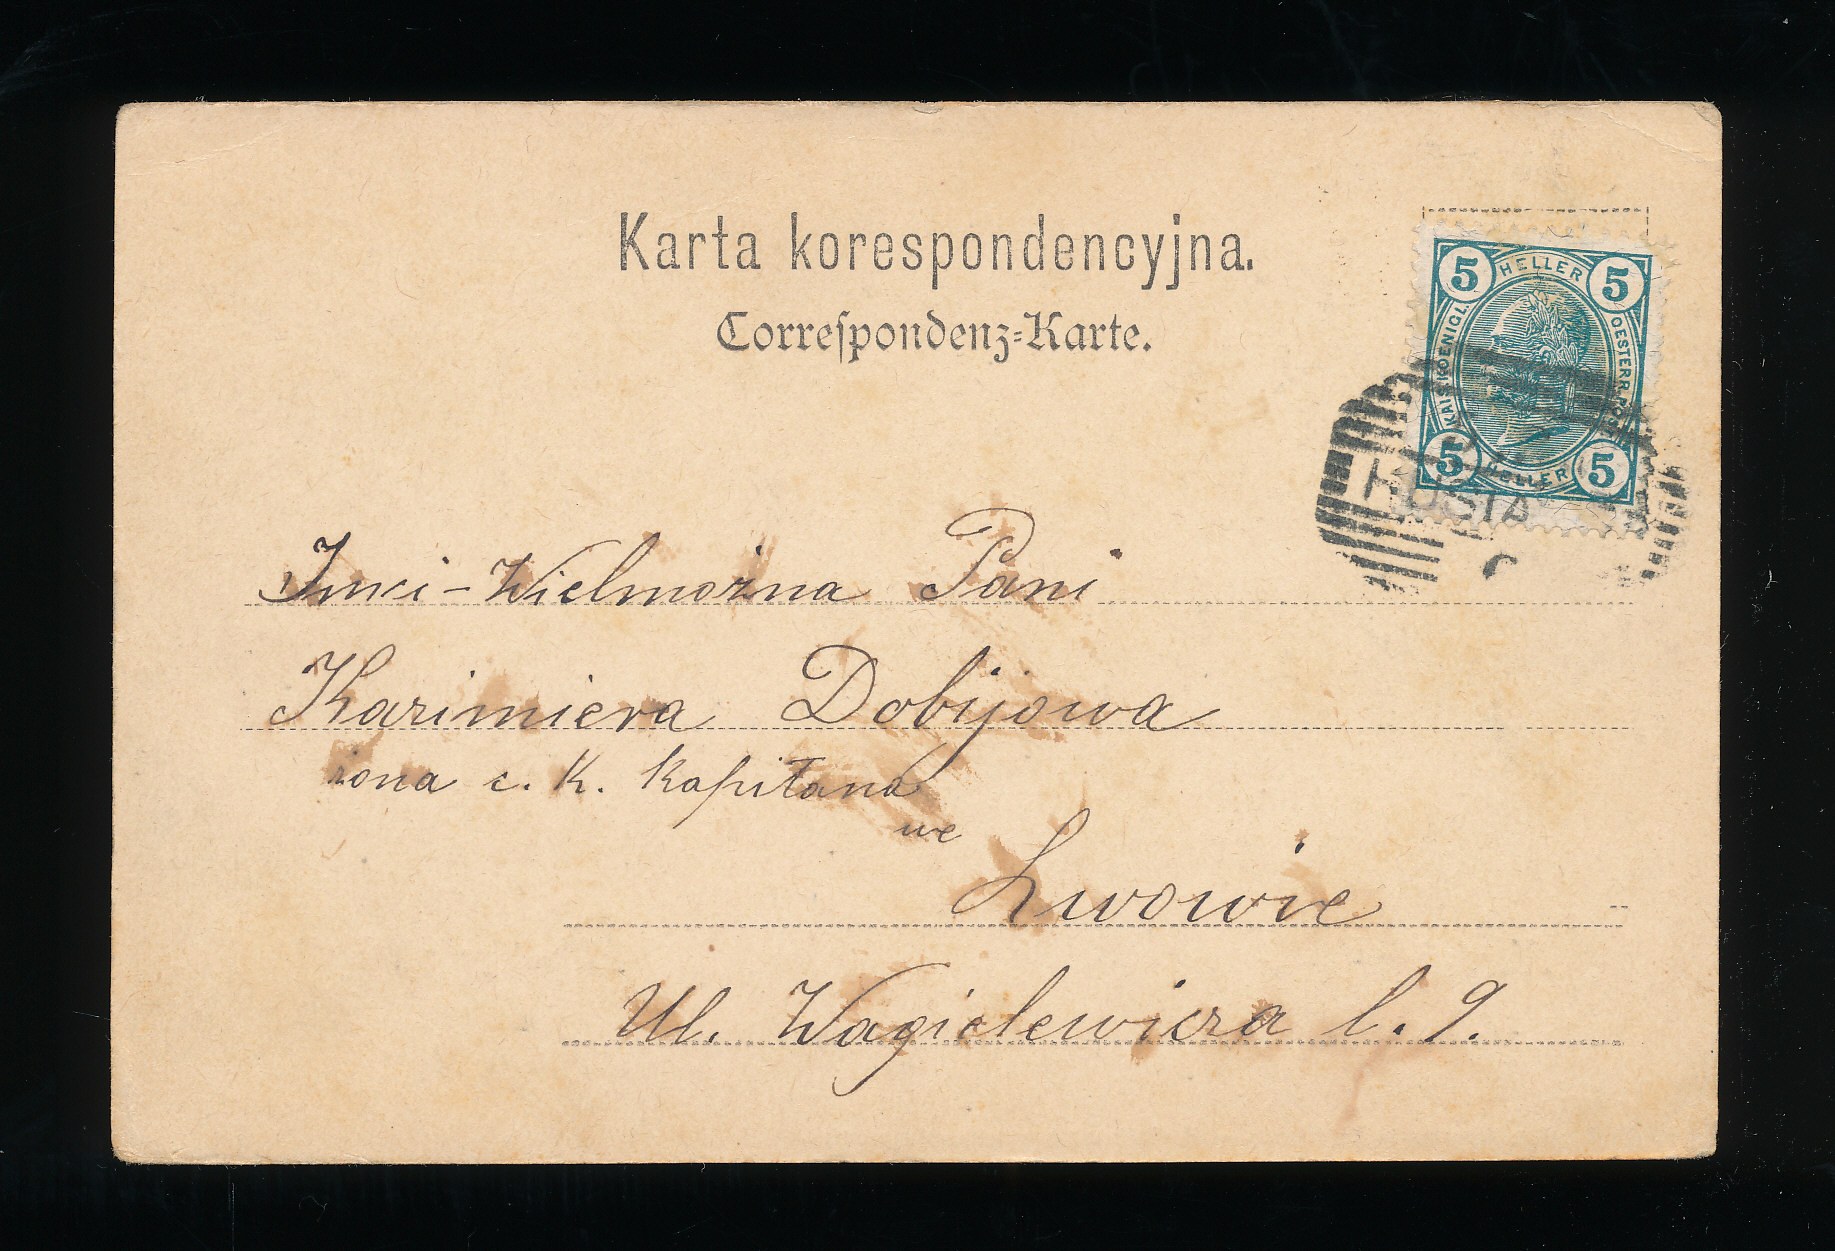 Karta korespondencyjna.
Correſpondenz=Karte.
5 HELLER 5
KAIS. KOENIGL. OESTERR. POST
5 HELLER 5
HUSIA
Wielmożna Pani
Kazimiera Dobijowa
żona c. k. kapitana
we
Lwowie
Ul. Wagielewicza l. 9.